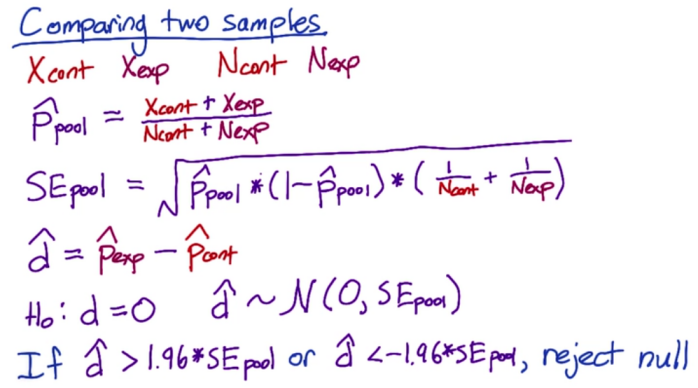 Comparing two samples
Xcont Xexp Ncont Nexp
p̂pool = (Xcont + Xexp) / (Ncont + Nexp)
SEpool = √(p̂pool * (1-p̂pool) * (1/Ncont + 1/Nexp))
d̂ = p̂exp − p̂cont
H₀: d = 0 d̂ ~ N(0, SEpool)
If d̂ > 1.96*SEpool or d̂ < -1.96*SEpool, reject null